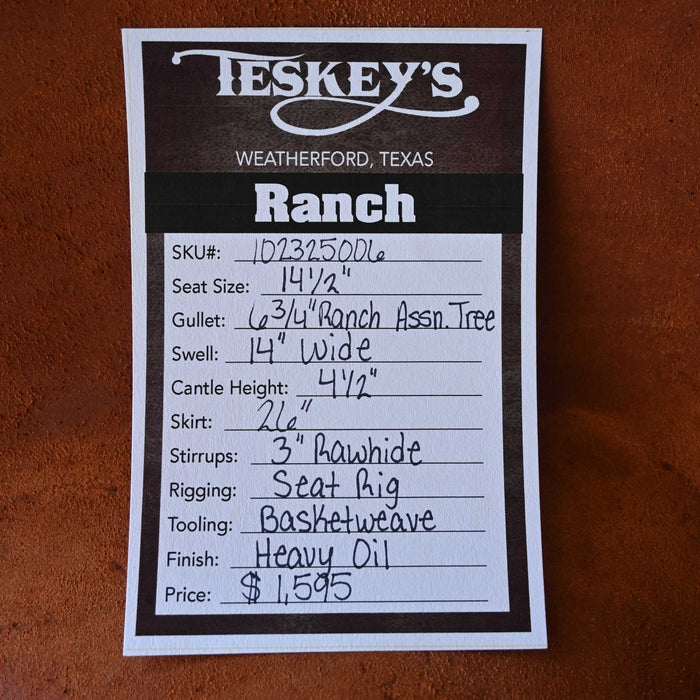 TESKEY'S
WEATHERFORD, TEXAS
Ranch
SKU#: 102325006
Seat Size: 14 1/2"
Gullet: 6 3/4" Ranch Assn. Tree
Swell: 14" Wide
Cantle Height: 4 1/2"
Skirt: 26"
Stirrups: 3" Rawhide
Rigging: Seat Rig
Tooling: Basketweave
Finish: Heavy Oil
Price: $1,595